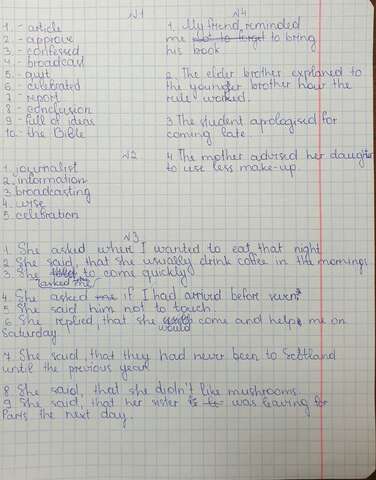 N1
1 - article
2 - approve
3 - confessed
4 - broadcast
5 - quit
6 - celebrated
7 - report
8 - conclusion
9 - full of ideas
10 - the Bible
N4
1. My friend reminded
me not to forget to bring
his book.
2. The elder brother explained to
the younger brother how the
rule worked.
3. The student apologised for
coming late
4. The mother advised her daughter
to use less make-up.
N2
1. journalist
2. information
3. broadcasting
4. wise
5. celebration
N3
1. She asked where I wanted to eat that night
2. She said, that she usually drink coffee in the mornings
3. She asked me to come quickly
4. She asked me if I had arrived before seven
5. She said him not to touch.
6. She replied, that she would come and help me on
Saturday
7. She said, that they had never been to Scotland
until the previous year
8. She said, that she didn't like mushrooms.
9. She said, that her sister is was leaving for
Paris the next day.